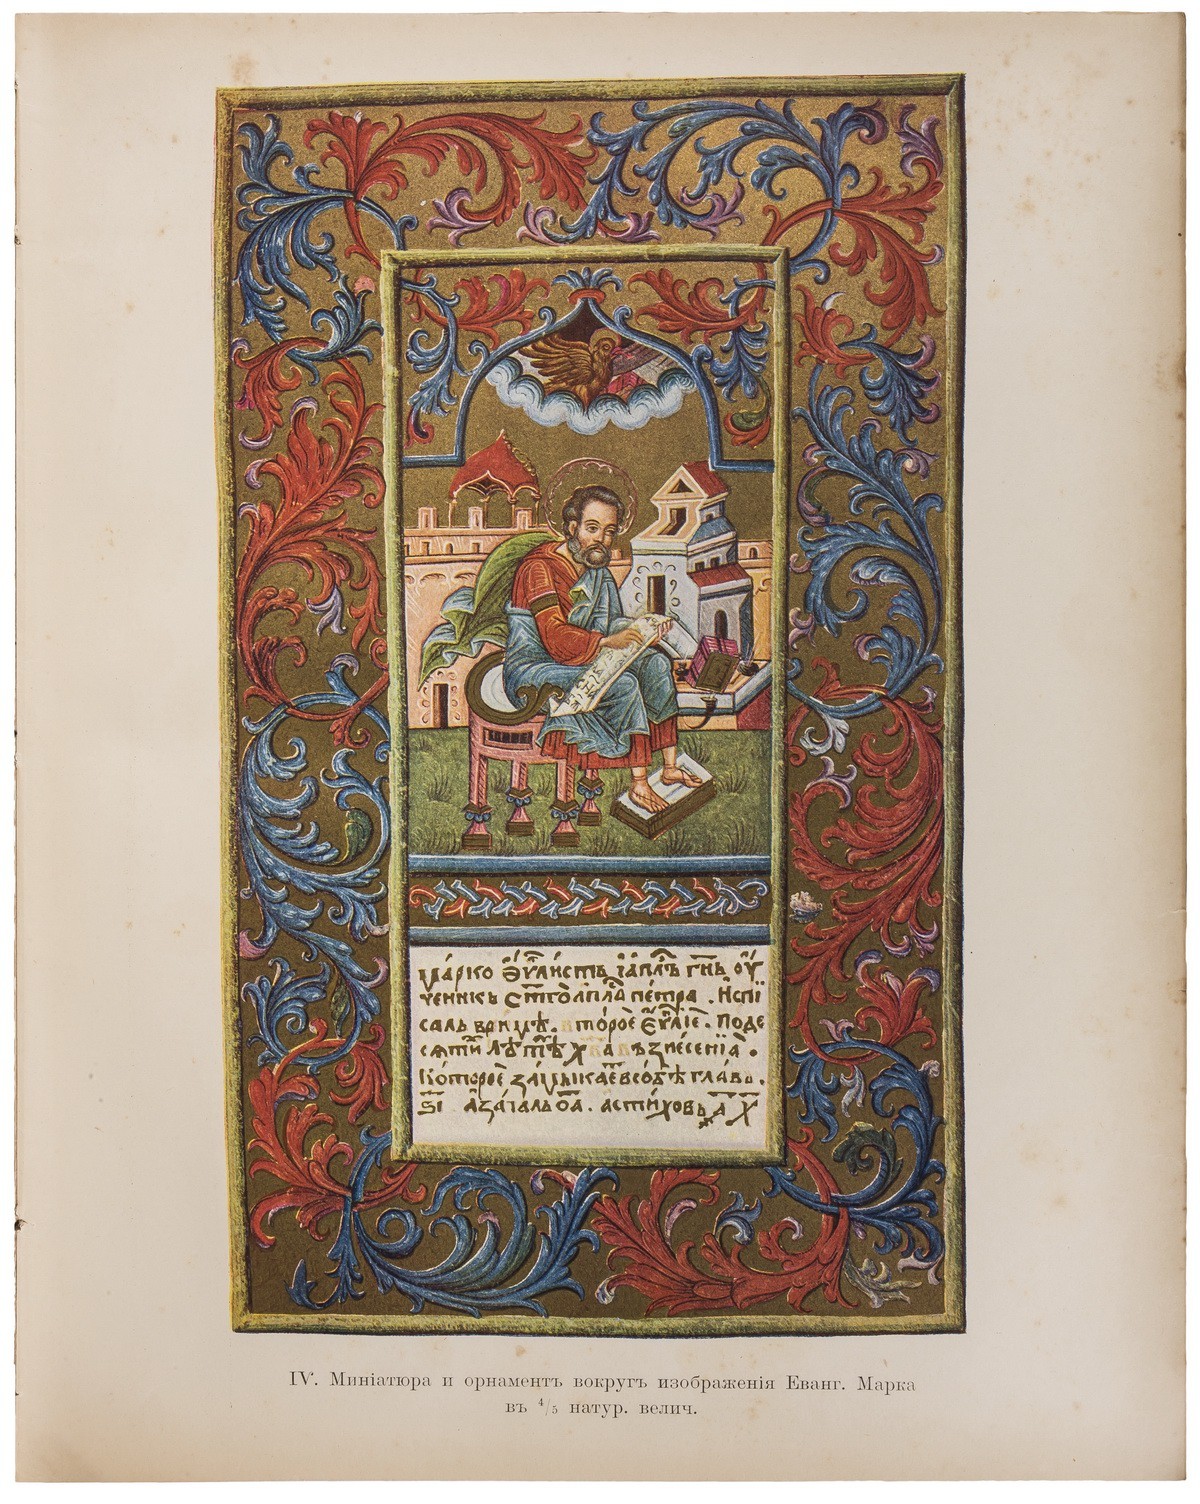 марко єѵⷢ҇листъ і҆апⷭ҇лъ гⷭ҇нь ᲂу҆
ченикъ ст҃го апⷭ҇ла петра . Испї
салъ вримѣ . второе є҆ѵⷢ҇лїе . поде
сѧти лѣтѣхъ х҃ва възнесенїа .
Которое замыкае всобѣ главъ .
ѕ҃і а҆ зачалъ о҃а . астиховъ ҂а҃х҃
IV. Миніатюра и орнаментъ вокругъ изображенія Еванг. Марка
въ ⁴/₅ натур. велич.